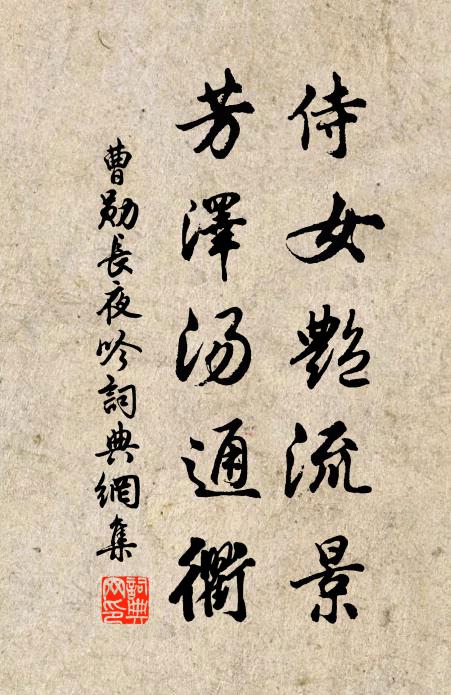 侍女艷流景
芳澤湯通衢
曹勛長夜吟詞典網集
詞典網印